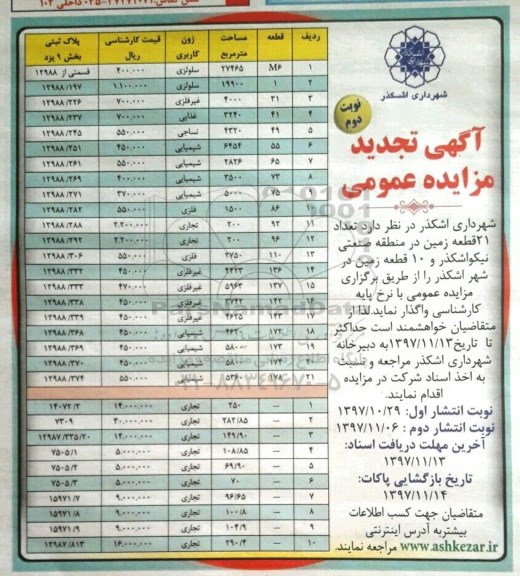 شهرداری اشکذر
نوبت دوم
آگهی تجدید
مزایده عمومی
شهرداری اشکذر در نظر دارد تعداد
۲۱قطعه زمین در منطقه صنعتی
نیکواشکذر و ۱۰ قطعه زمین در
شهر اشکذر را از طریق برگزاری
مزایده عمومی با نرخ پایه
کارشناسی واگذار نماید.لذا از
متقاضیان خواهشمند است حداکثر
تا تاریخ۱۳۹۷/۱۱/۱۳به دبیرخانه
شهرداری اشکذر مراجعه و نسبت
به اخذ اسناد شرکت در مزایده
اقدام نمایند.
نوبت انتشار اول: ۱۳۹۷/۱۰/۲۹
نوبت انتشار دوم : ۱۳۹۷/۱۱/۰۶
آخرین مهلت دریافت اسناد:
۱۳۹۷/۱۱/۱۳
تاریخ بازگشایی پاکات:
۱۳۹۷/۱۱/۱۴
متقاضیان جهت کسب اطلاعات
بیشتربه آدرس اینترنتی
www.ashkezar.ir مراجعه نمایند.
ردیف قطعه مساحت مترمربع زون کاربری قیمت کارشناسی ریال پلاک ثبتی بخش ۹ یزد
۱ M۶ ۲۷۴۶۵ سلولزی ۴۰۰,۰۰۰ قسمتی از ۱۲۹۸۸
۲ ۱ ۱۹۹۰۰ سلولزی ۱,۱۰۰,۰۰۰ ۱۲۹۸۸/۱۹۷
۳ ۳۱ ۴۰۰۰ غیرفلزی ۷۰۰,۰۰۰ ۱۲۹۸۸/۲۲۶
۴ ۴۱ ۳۲۴۰ غذایی ۷۰۰,۰۰۰ ۱۲۹۸۸/۲۳۷
۵ ۴۹ ۴۳۲۰ نساجی ۵۵۰,۰۰۰ ۱۲۹۸۸/۲۴۵
۶ ۵۵ ۶۴۵۴ شیمیایی ۴۵۰,۰۰۰ ۱۲۹۸۸/۲۵۱
۷ ۶۵ ۲۸۲۶ شیمیایی ۵۵۰,۰۰۰ ۱۲۹۸۸/۲۶۱
۸ ۷۳ ۳۵۰۰ شیمیایی ۴۰۰,۰۰۰ ۱۲۹۸۸/۲۶۹
۹ ۷۵ ۵۰۰۰ شیمیایی ۳۷۰,۰۰۰ ۱۲۹۸۸/۲۷۱
۱۰ ۸۶ ۱۵۰۰ فلزی ۵۵۰,۰۰۰ ۱۲۹۸۸/۲۸۲
۱۱ ۹۲ ۲۰۰ تجاری ۲,۲۰۰,۰۰۰ ۱۲۹۸۸/۲۸۸
۱۲ ۹۶ ۲۰۰ تجاری ۲,۲۰۰,۰۰۰ ۱۲۹۸۸/۲۹۲
۱۳ ۱۱۰ ۲۷۵۰ فلزی ۵۵۰,۰۰۰ ۱۲۹۸۸/۳۰۶
۱۴ ۱۳۶ ۴۴۲۳ غیرفلزی ۴۵۰,۰۰۰ ۱۲۹۸۸/۳۳۲
۱۵ ۱۳۷ ۵۹۶۳ غیرفلزی ۴۷۰,۰۰۰ ۱۲۹۸۸/۳۳۳
۱۶ ۱۴۲ غیرفلزی ۴۵۰,۰۰۰ ۱۲۹۸۸/۳۳۸
۱۷ ۱۴۳ ۴۶۲۵ غیرفلزی ۴۵۰,۰۰۰ ۱۲۹۸۸/۳۳۹
۱۸ ۱۷۲ شیمیایی ۴۵۰,۰۰۰ ۱۲۹۸۸/۳۶۸
۱۹ ۱۷۳ ۵۸۰۰ شیمیایی ۴۵۰,۰۰۰ ۱۲۹۸۸/۳۶۹
۲۰ ۱۷۴ ۵۸۰۰ شیمیایی ۴۵۰,۰۰۰ ۱۲۹۸۸/۳۷۰
۲۱ ۱۷۸ ۵۳۶۰ شیمیایی ۵۵۰,۰۰۰ ۱۲۹۸۸/۳۷۴
۱ — ۲۵۰ تجاری ۱۴,۰۰۰,۰۰۰ ۱۴۰۷۲/۳
۲ — ۲۸۲/۸۵ تجاری ۳۰,۰۰۰,۰۰۰ ۷۳۰۹
۳ — ۱۴۹/۹۰ تجاری ۱۴,۰۰۰,۰۰۰ ۱۲۹۸۷/۳۳۵/۲۰
۴ — ۱۰۸/۸۵ تجاری ۵,۰۰۰,۰۰۰ ۷۵۰۵/۱
۵ — ۶۹/۹۰ تجاری ۵,۰۰۰,۰۰۰ ۷۵۰۵/۲
۶ — ۷۰ تجاری ۵,۰۰۰,۰۰۰ ۷۵۰۵/۳
۷ — ۹۶/۶۵ تجاری ۹,۰۰۰,۰۰۰ ۱۵۹۷۱/۷
۸ — ۱۰۰/۸ تجاری ۹,۰۰۰,۰۰۰ ۱۵۹۷۱/۸
۹ — ۱۰۴/۹ تجاری ۹,۰۰۰,۰۰۰ ۱۵۹۷۱/۹
۱۰ — ۲۹۰/۴ تجاری ۱۶,۰۰۰,۰۰۰ ۱۲۹۸۷/۸۱۳